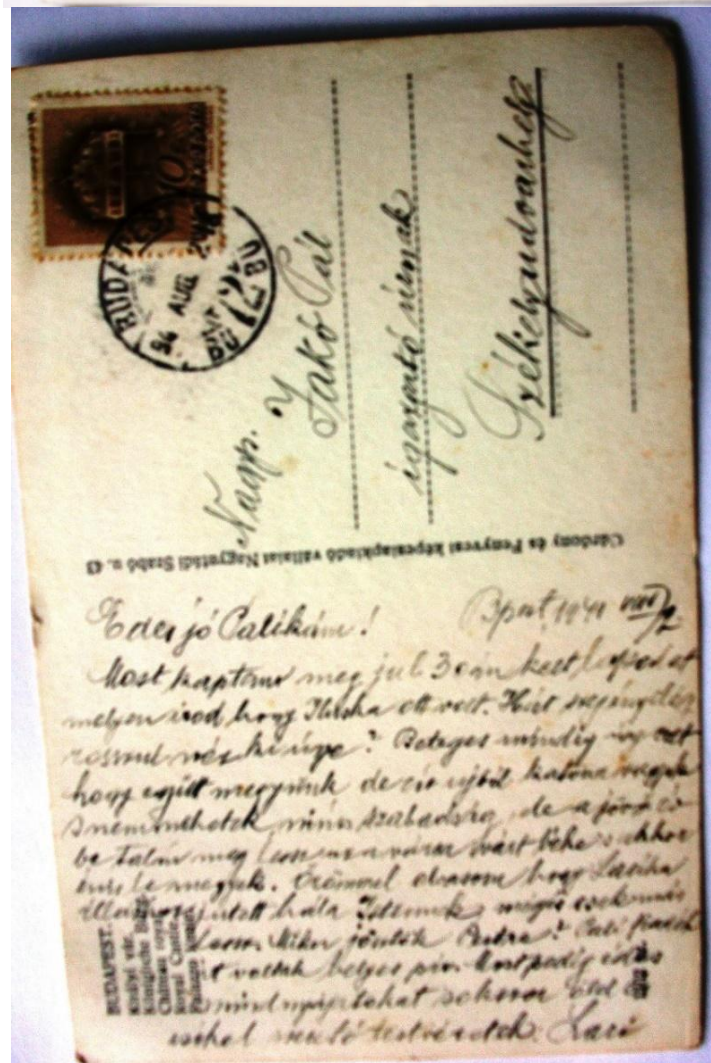 BUDAPEST
AUG
BU
Nagys.
Jakó Pál
igazgató úrnak
Székelyudvarhely
Cárdony és Fenyvesi képeslapkiadó vállalat Nagyatádi Szabó u. 43
Édes jó Palikám! Bpest, 1941 VIII/2.
Most kaptam meg jul. 3 án kelt
melyen irod hogy Iluska ott volt. Hát szegény
rosszul néz ki ugye? Beteges mindig
hogy együtt megyünk de én ujból katona vagyok
s nem mehetek nincs szabadság, de a jövő
be talán meg lesz a várva várt béke s akkor
én is lemegyek. Örömmel olvasom hogy Lacika
álláshoz jutott hála Istennek mégis
Mikor jöttök Pestre? Pali
voltak helyes Most pedig édes
mindnyájatokat sokszor
testvéretek Laci
BUDAPEST.
Királyi vár.
Königliche Burg
Château royal
Royal Castle
Palazzo Reale